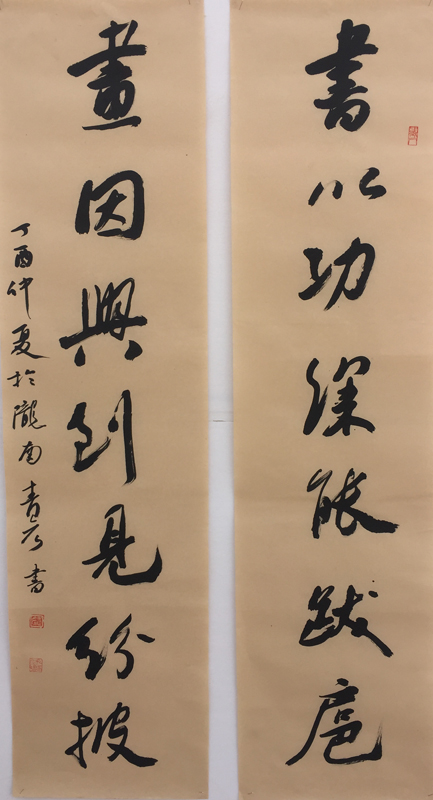 書以功深能跋扈
畫因興到見紛披
丁酉仲夏於隴南青石書